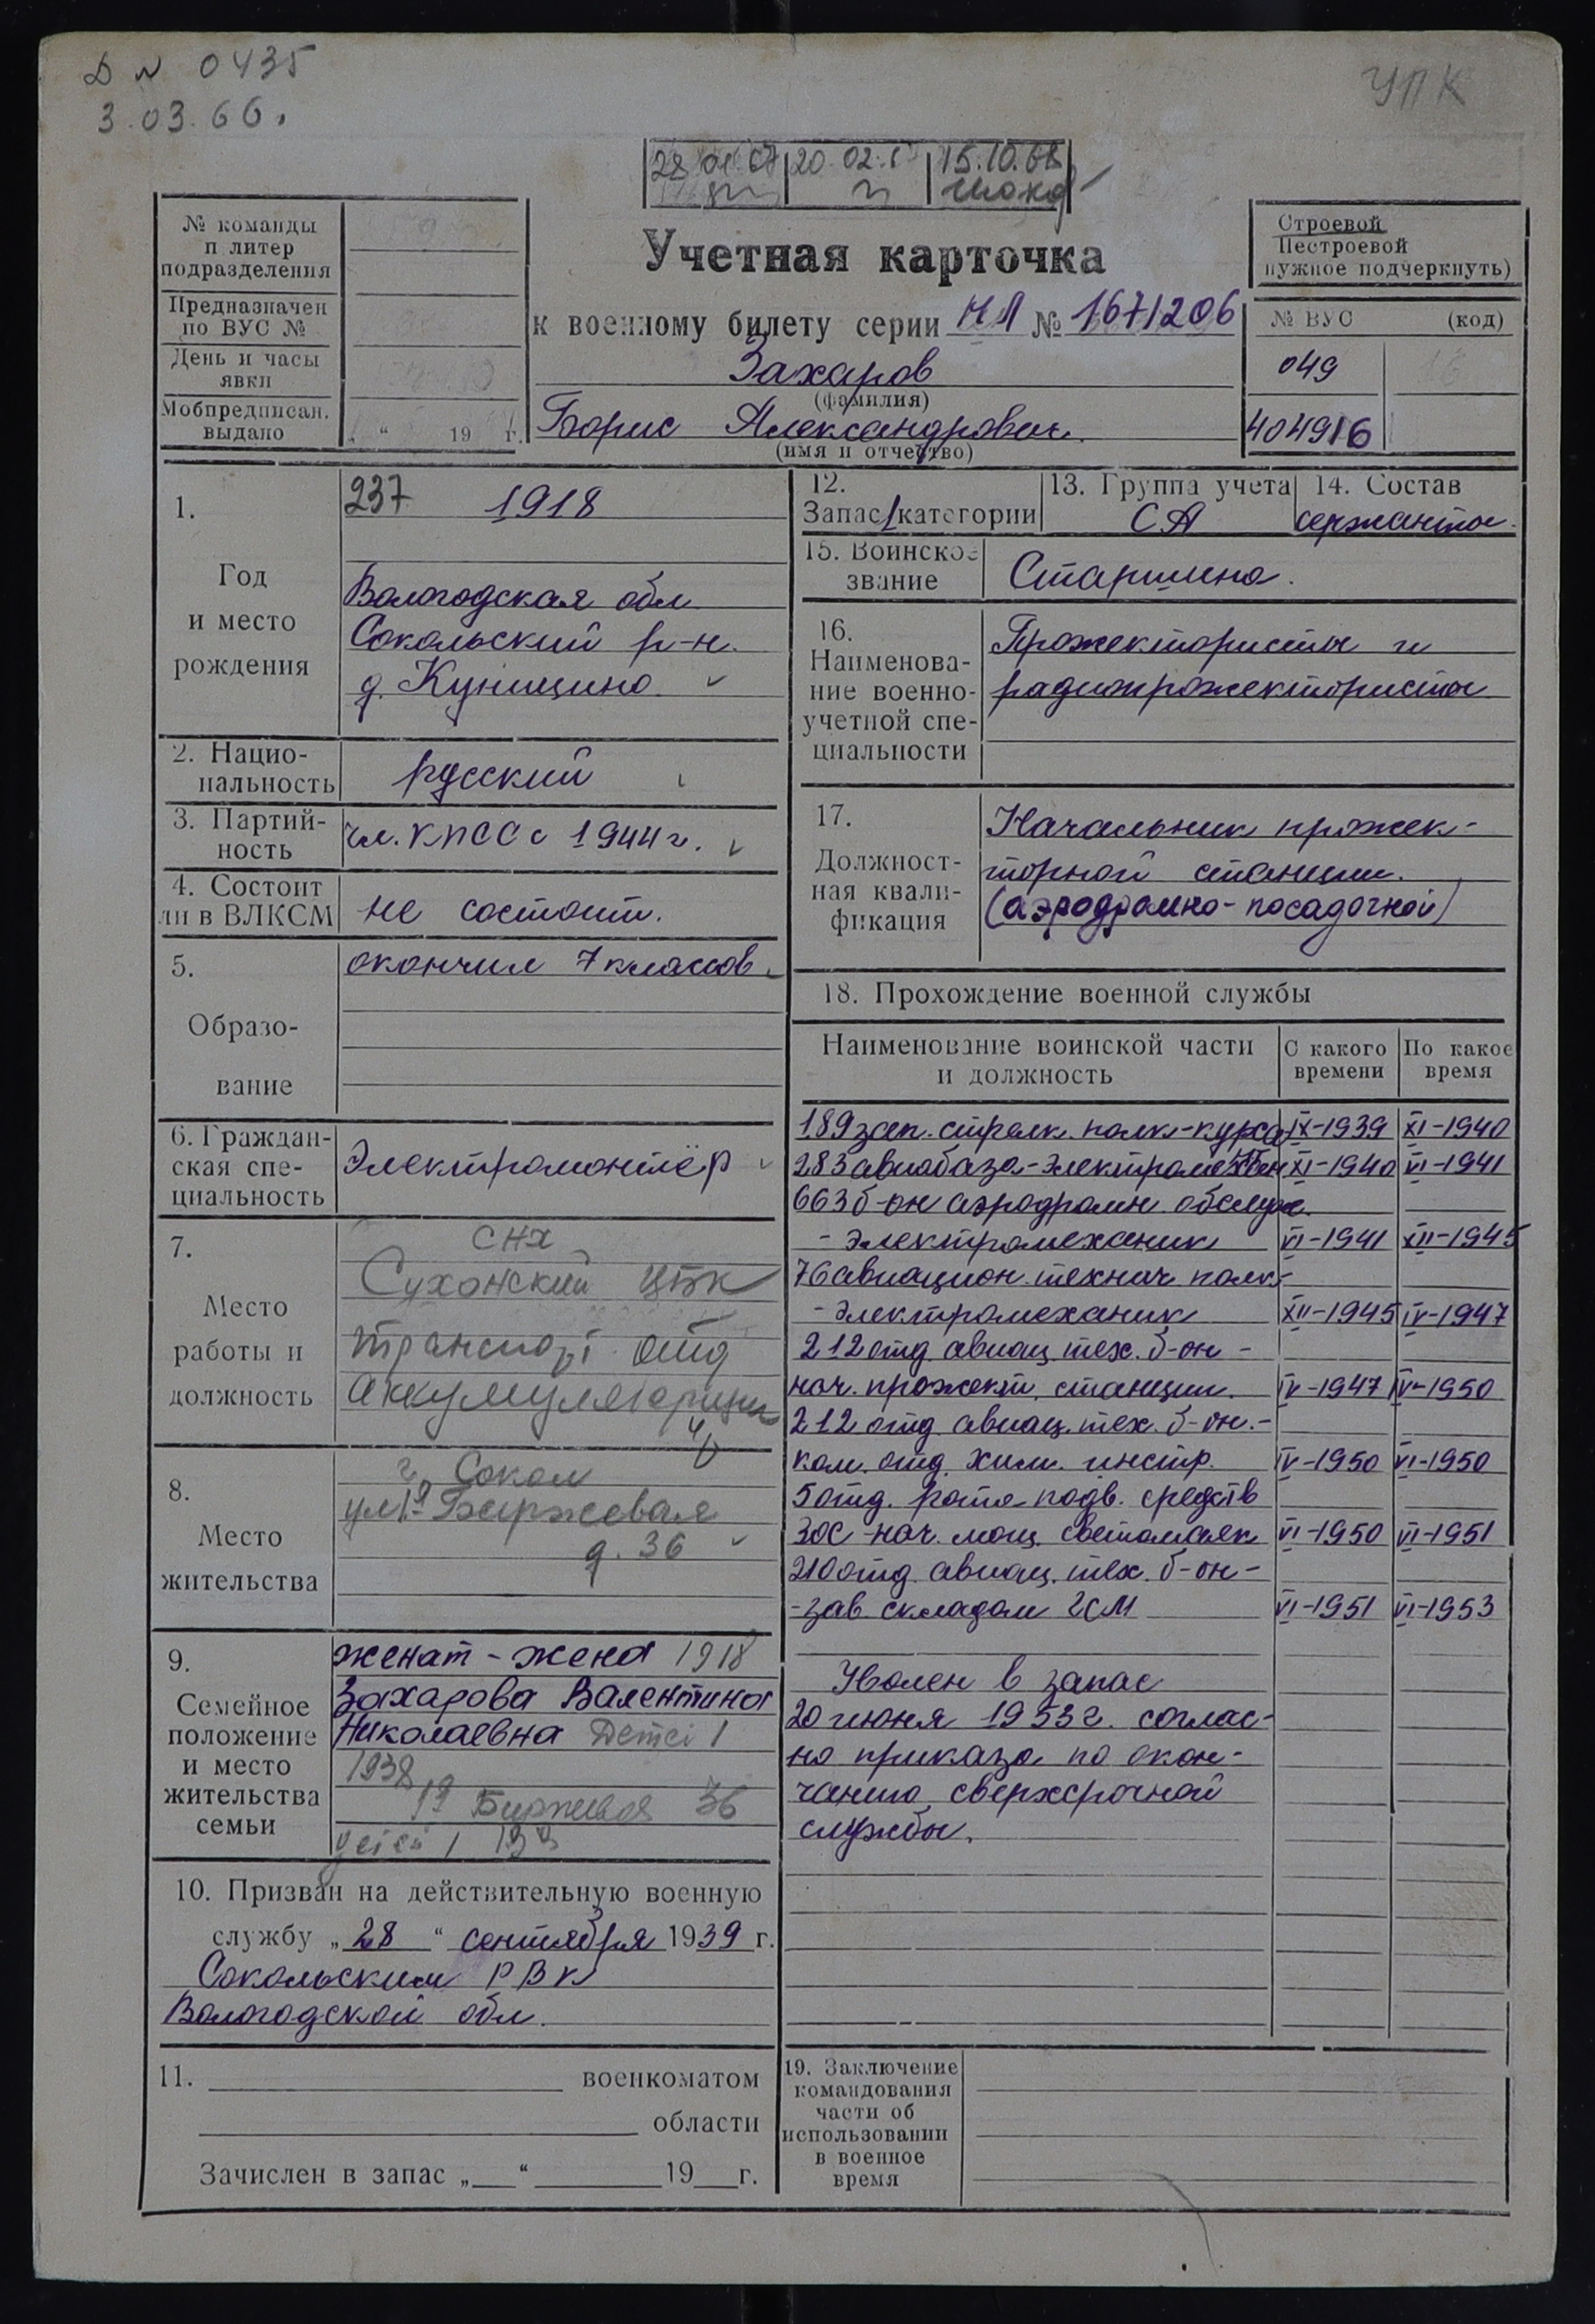 Д № 0435
3.03.66.
УПК
28 01 67 20 02 15.10.68
№ команды
и литер
подразделения
Предназначен
по ВУС №
День и часы
явки
Мобпредписан.
выдано
„ “ 19 г.
Учетная карточка
к военному билету серии НЛ № 1671206
Захаров
(фамилия)
Борис Александрович.
(имя и отчество)
Строевой
Нестроевой
нужное подчеркнуть)
№ ВУС (код)
049
404916
1.
Год
и место
рождения
237 1918
Вологодская обл.
Сокольский р-н.
д. Куницино
2. Нацио-
нальность
русский
3. Партий-
ность
чл. КПСС с 1944 г.
4. Состоит
ли в ВЛКСМ
не состоит.
5.
Образо-
вание
окончил 7 классов
6. Граждан-
ская спе-
циальность
Электромонтёр
7.
Место
работы и
должность
СНХ
Сухонский ЦБК
транспорт отд
аккумуляторщик
8.
Место
жительства
г. Сокол
ул 1я Биржевая
д. 36
9.
Семейное
положение
и место
жительства
семьи
женат - жена 1918
Захарова Валентина
Николаевна Детей 1
1938
Биржевая 36
детей 1
10. Призван на действительную военную
службу „28“ сентября 1939 г.
Сокольским РВК
Вологодской обл.
11. военкоматом
области
Зачислен в запас „ “ 19 г.
12.
Запас 1 категории
13. Группа учета
СА
14. Состав
сержанты.
15. Воинское
звание
Старшина.
16.
Наименова-
ние военно-
учетной спе-
циальности
Прожектористы и
радиопрожектористы
17.
Должност-
ная квали-
фикация
Начальник прожек-
торной станции.
(аэродромно-посадочной)
18. Прохождение военной службы
Наименование воинской части
и должность
С какого
времени
По какое
время
189 зап. стрелк. полк-курса IX-1939 XI-1940
283 авиабаза-электромехан XI-1940 VI-1941
663 б-он аэродромн. обслуж.
- электромеханик VI-1941 XII-1945
76 авиацион. технич полк-
- электромеханик XII-1945 IV-1947
212 отд. авиац. тех. б-он -
нач. прожект. станции. IV-1947 IV-1950
212 отд авиац. тех. б-он.-
ком. отд. хим. инстр. IV-1950 VI-1950
5 отд. рота подв. средств
ЗОС -нач. мощ. светомаяк VI-1950 VI-1951
210 отд. авиац. тех. б-он-
-зав складом ГСМ VI-1951 VI-1953
Уволен в запас
20 июня 1953 г. соглас-
но приказа по окон-
чанию сверхсрочной
службы.
19. Заключение
командования
части об
использовании
в военное
время